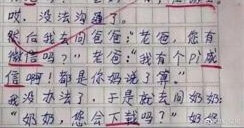 哎，没法沟通了。
然后我去问爸爸：“老爸，您有
微信吗？”老爸：“我有个P威
信啊！都是你妈说了算。”
我没办法了，于是就去问奶奶：
“奶奶，您会下载吗？”奶奶